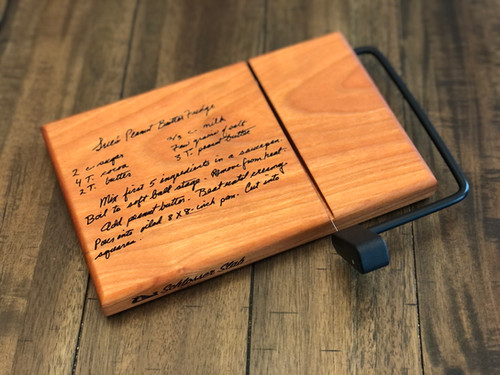 Sue's Peanut Butter Fudge
2 c. sugar 2/3 c. milk
4 T. cocoa Few grains of salt
2 T. butter 3 T. peanut butter
Mix first 5 ingredients in a saucepan.
Boil to soft ball stage. Remove from heat.
Add peanut butter. Beat until creamy.
Pour into oiled 8 x 8-inch pan. Cut into
squares.